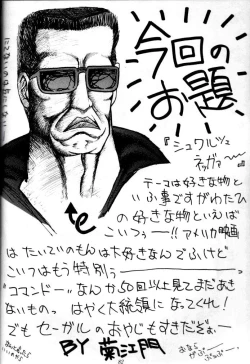 今回の
お題
『シュワルツェ
ネッガァー』
テーマは好きな物と
いふ事ですがわたひ
の好きな物といえば
こいつぅー!!アメリカ映画
はたいていのもんは大好きなんでふけど
こいつはもう特別ぅー
コマンドーなんか50回以上見てまだあき
ないもの。はやく大統領になってくれ!
でもセーガルのおやじもすきだぞぉー
BY 菊江門